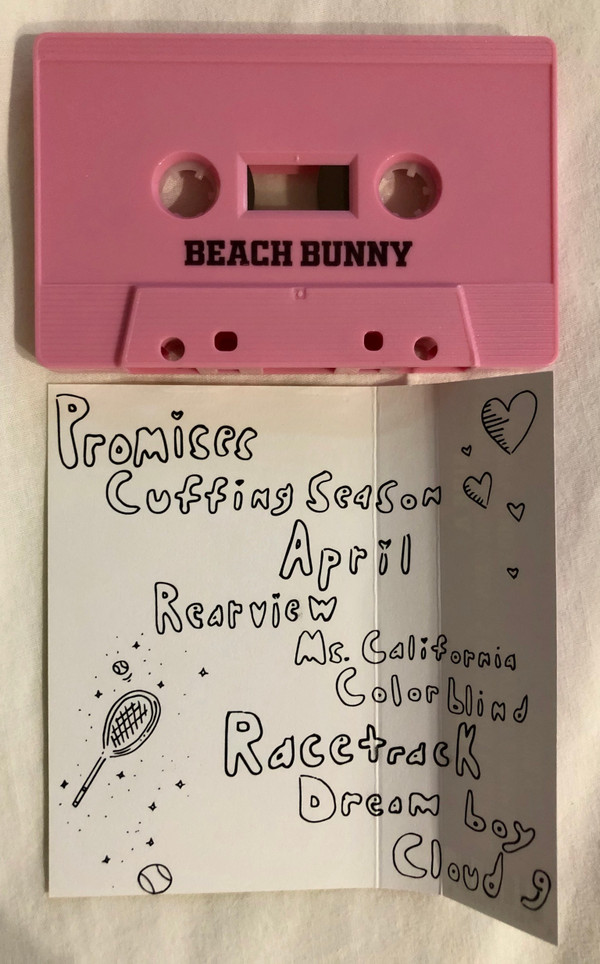 BEACH BUNNY
Promises
Cuffing Season
April
Rearview
Ms. California
Colorblind
Racetrack
Dream boy
Cloud 9